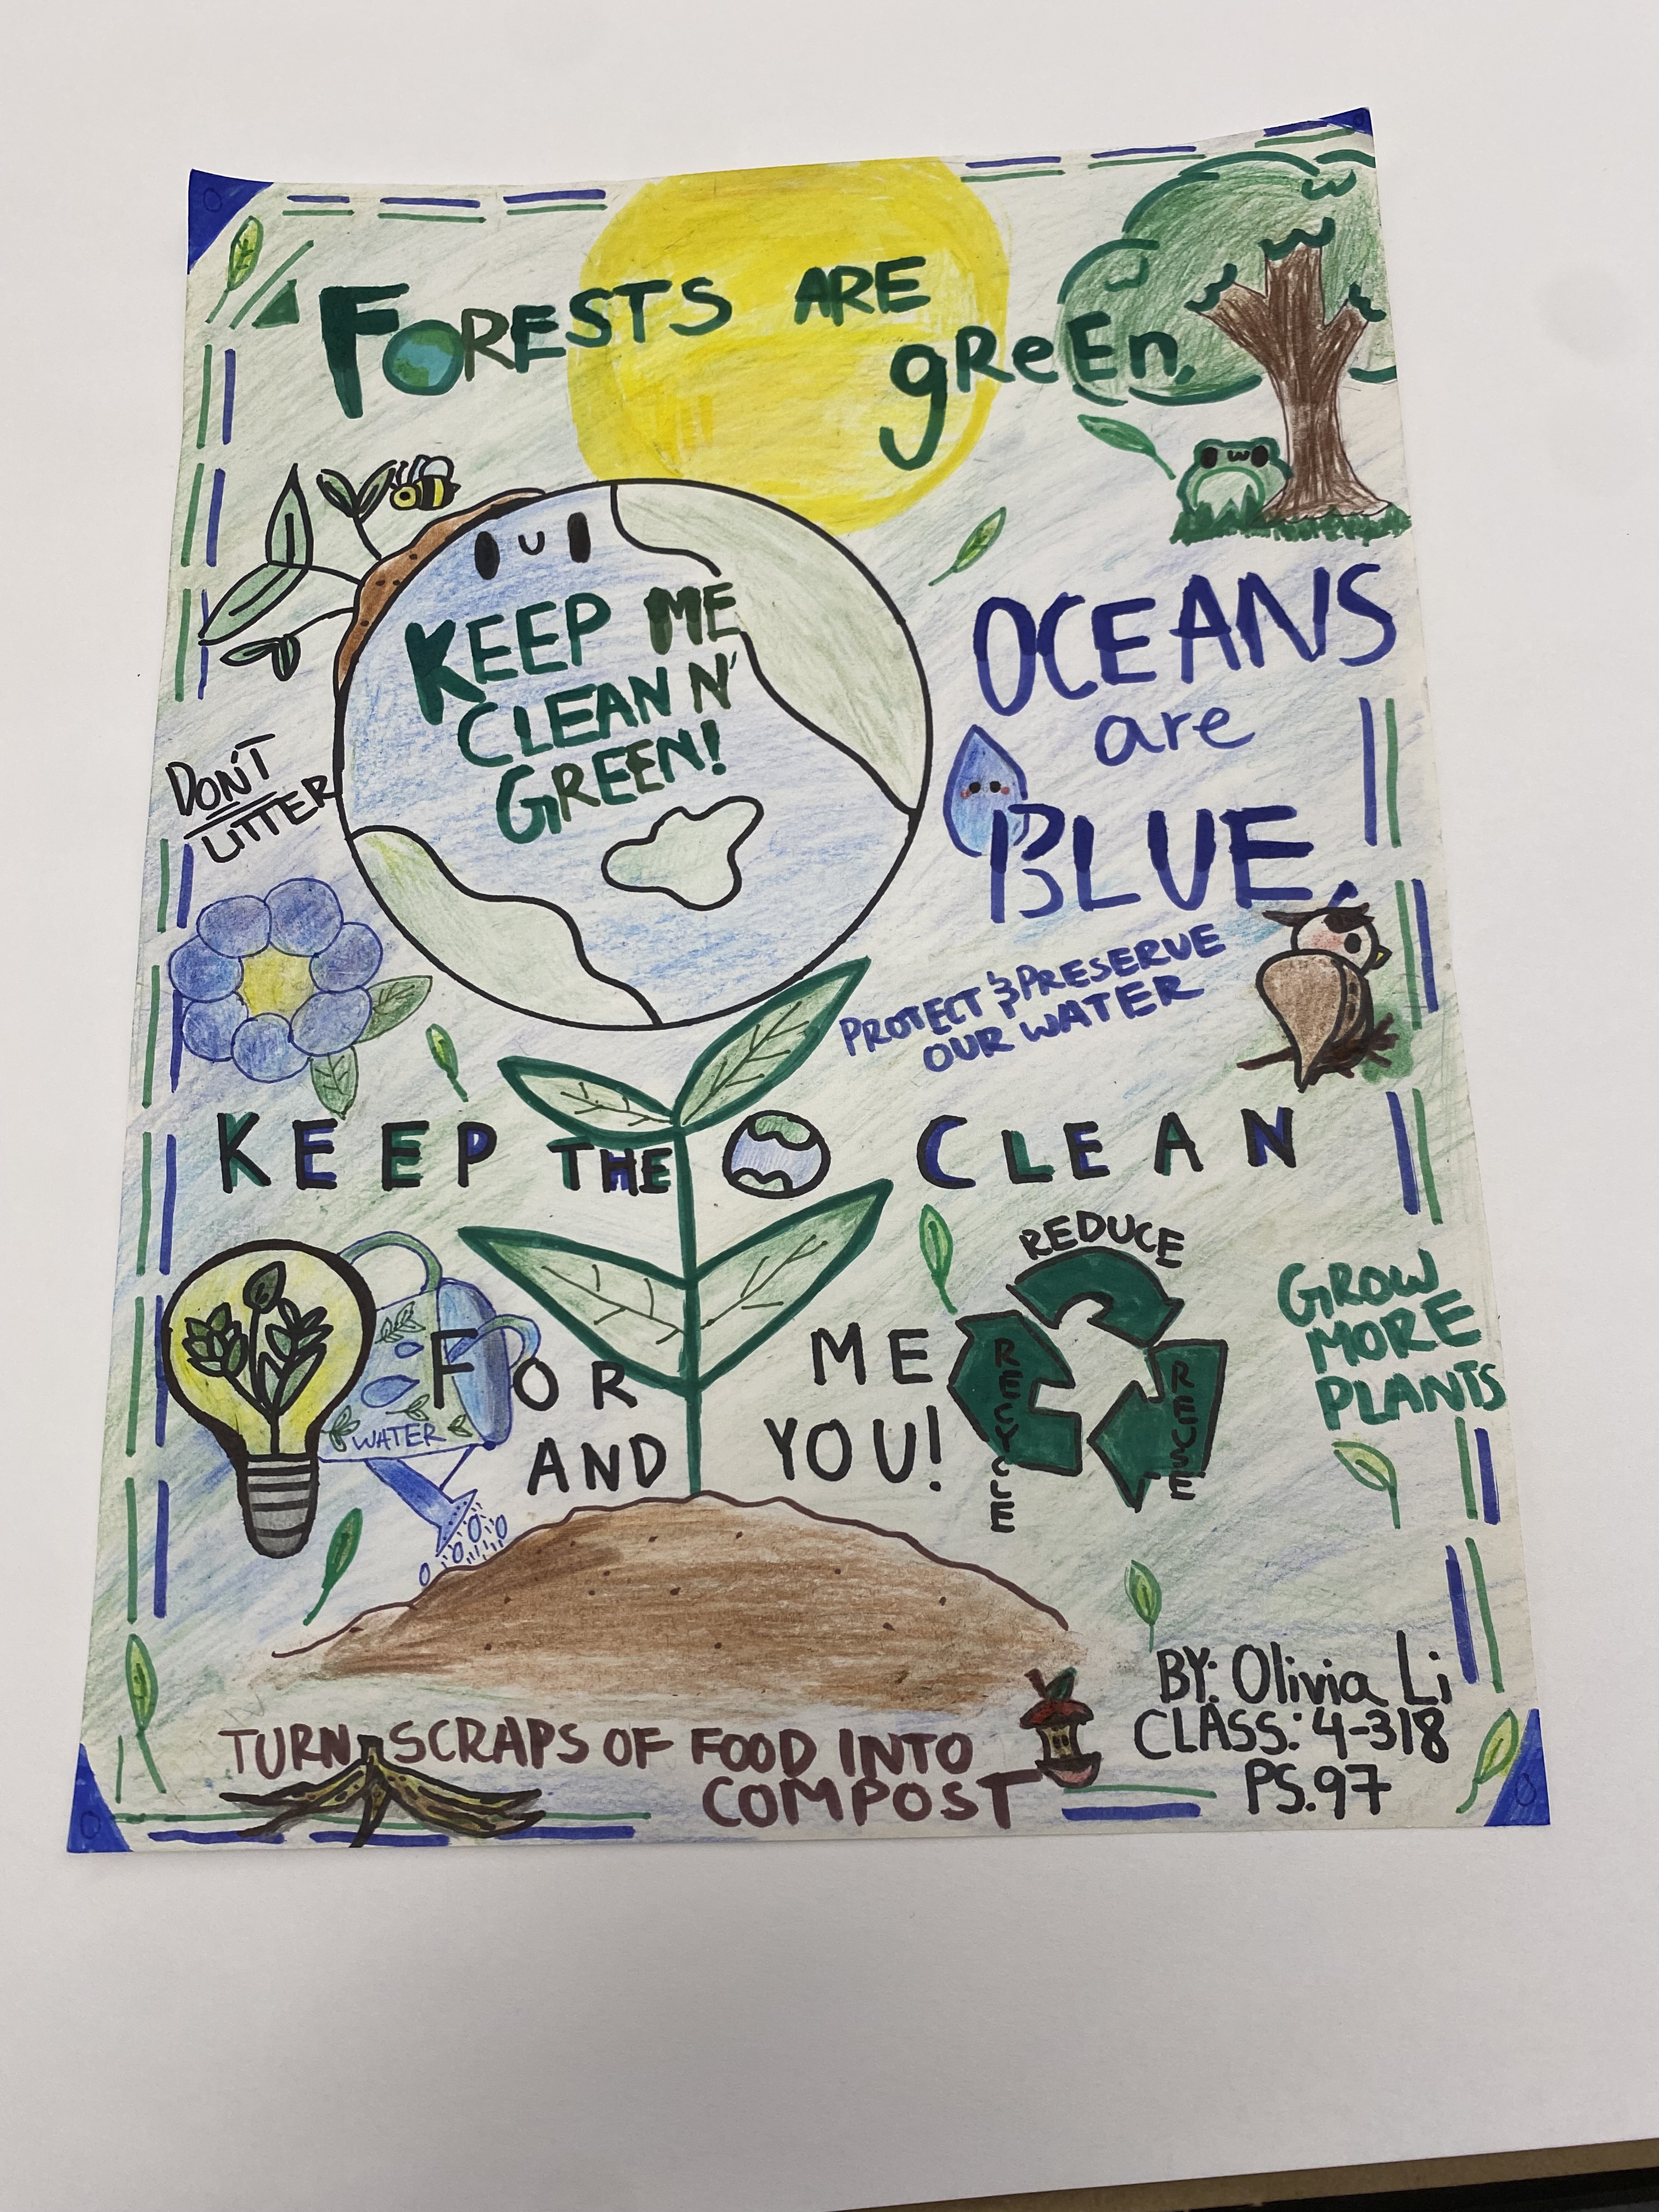 FORESTS ARE
gReEn.
KEEP ME
CLEAN N'
GREEN!
OCEANS
are
BLUE.
DON'T
LITTER
PROTECT & PRESERVE
OUR WATER
KEEP THE CLEAN
REDUCE
REUSE
RECYCLE
GROW
MORE
PLANTS
WATER
FOR ME
AND YOU!
TURN SCRAPS OF FOOD INTO
COMPOST
BY: Olivia Li
CLASS: 4-318
PS.97